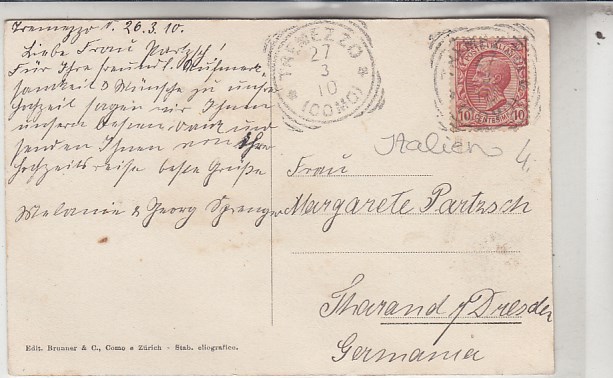 Tremezzo, 26.3.10.
Liebe Frau Partzsch!
Für Ihre freundl. Aufmerk-
samkeit & Wünsche zu unsrer
Hochzeit sagen wir Ihnen
unseren besten Dank und
senden Ihnen von der
Hochzeitsreise beste Grüße
Melanie & Georg Sprenger
TREMEZZO
27
3
10
(COMO)
POSTE ITALIANE
10 CENTESIMI 10
Italien
4.
Frau
Margarete Partzsch
Tharand / Dresden
Germania
Edit. Brunner & C., Como e Zürich - Stab. eliografico.